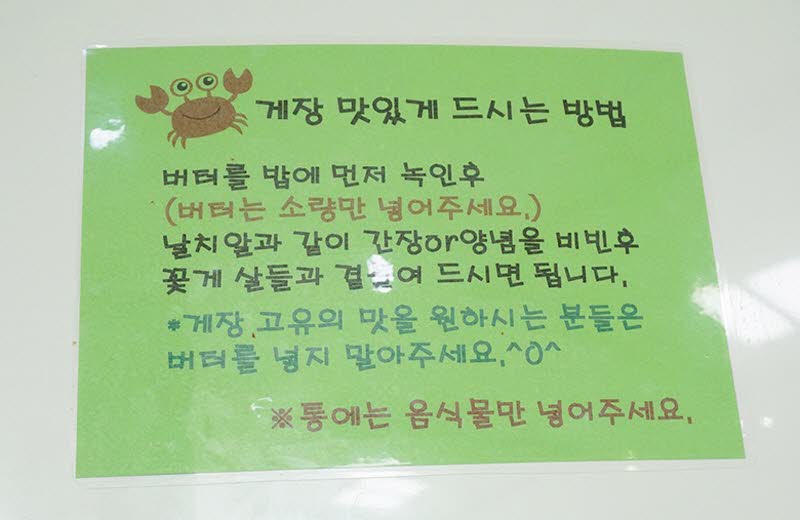 게장 맛있게 드시는 방법
버터를 밥에 먼저 녹인후
(버터는 소량만 넣어주세요.)
날치알과 같이 간장or양념을 비빈후
꽃게 살들과 드시면 됩니다.
*게장 고유의 맛을 원하시는 분들은
버터를 넣지 말아주세요.^O^
※통에는 음식물만 넣어주세요.